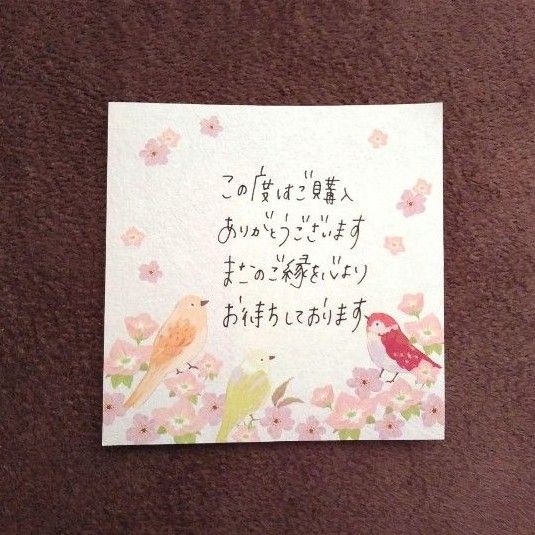 この度はご購入
ありがとうございます
またのご縁を心より
お待ちしております